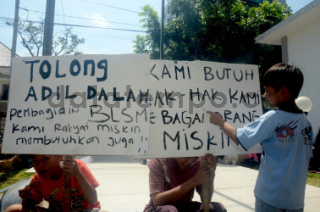 TOLONG
ADIL DALAM
pembagian BLSM
kami Rakyat miskin
membutuhkan juga!!
KAMI BUTUH
HAK HAK KAMI
SEBAGAI ORANG
MISKIN